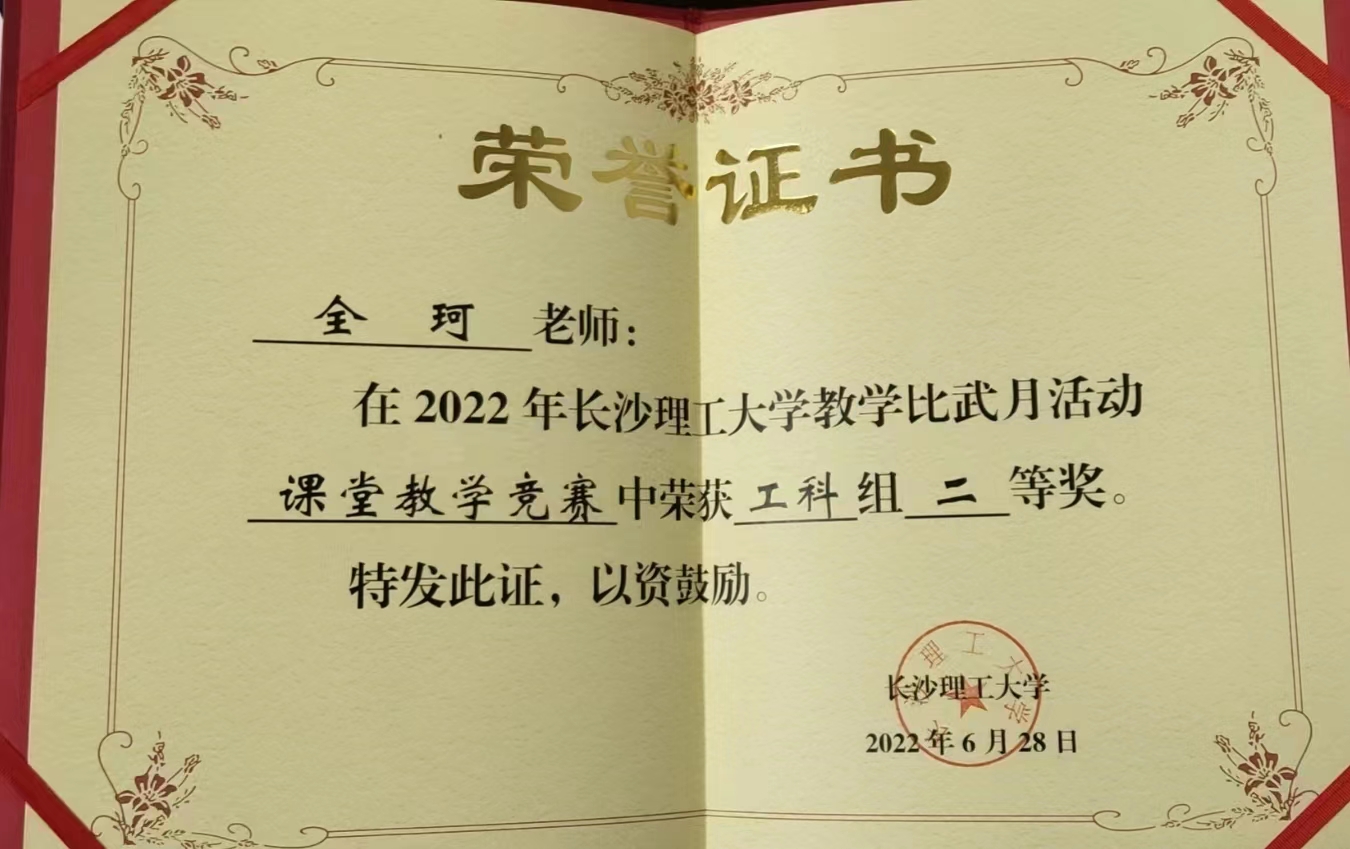 荣誉证书
全 珂 老师：
在 2022 年长沙理工大学教学比武月活动
课堂教学竞赛中荣获工科组 二 等奖。
特发此证，以资鼓励。
长沙理工大学
2022 年 6 月 28 日